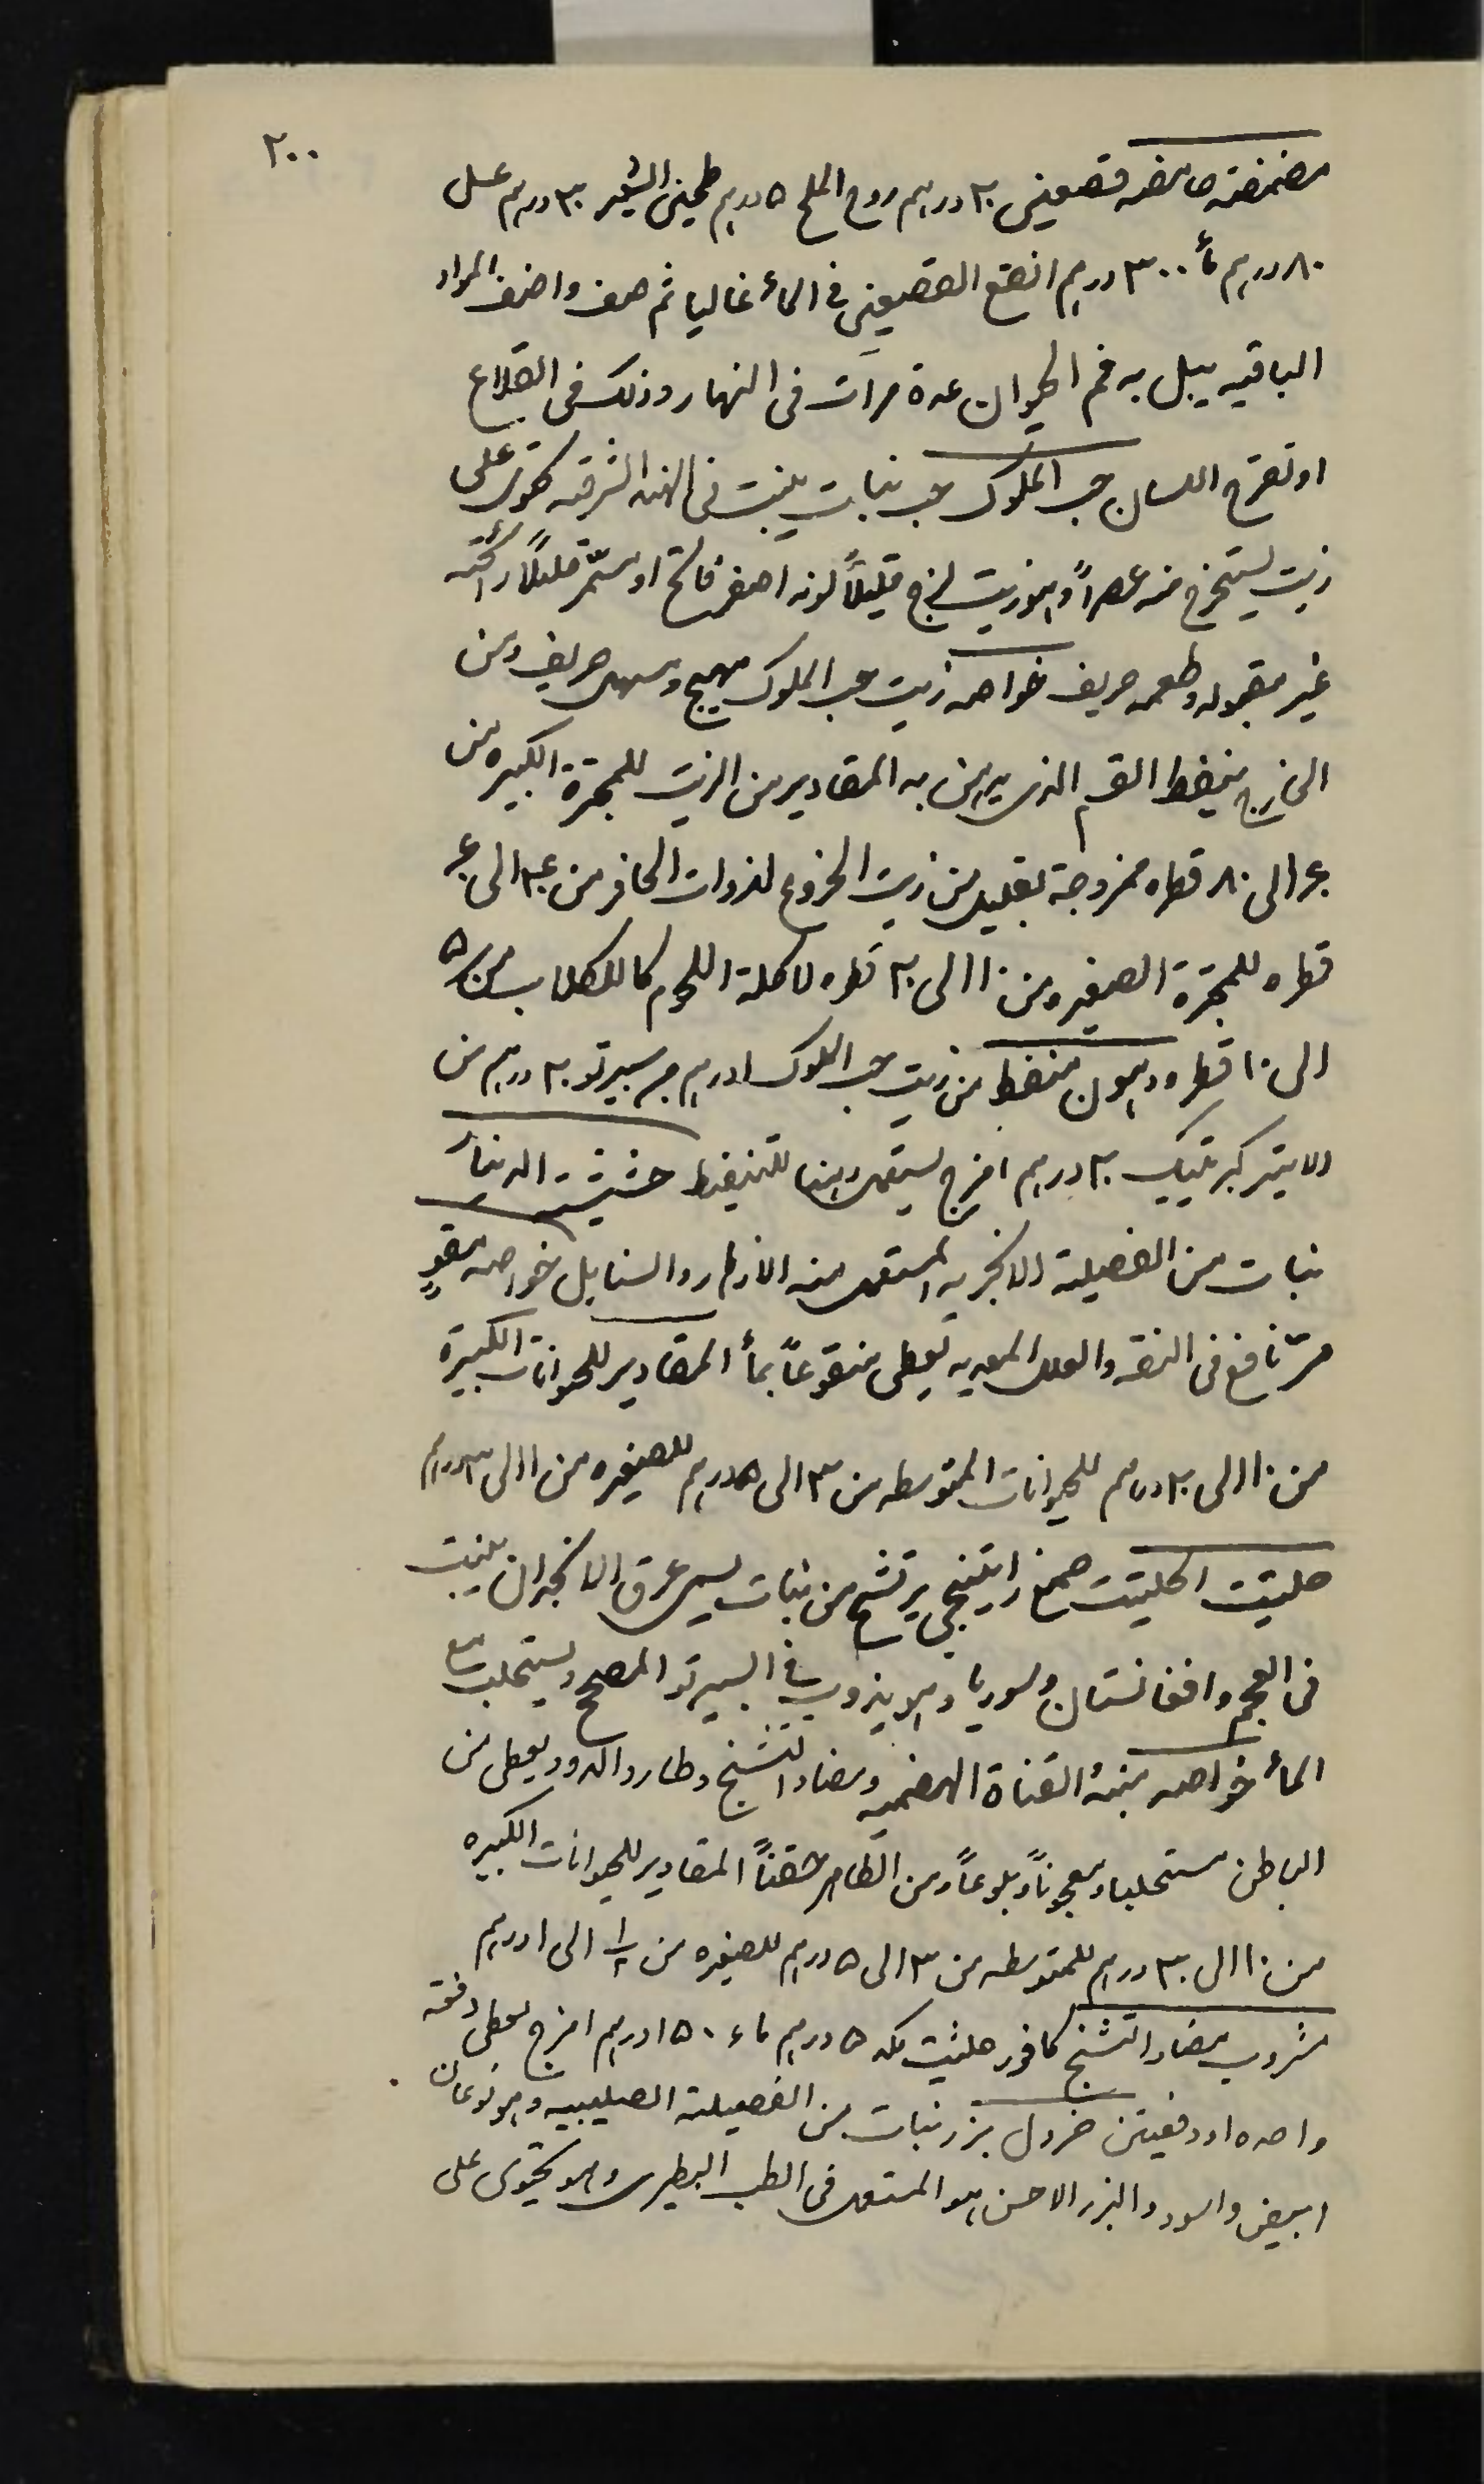 ٢٠٠
مضمضة حامضه قصعين ٢٠ درهم روح الملح ٥ درهم طحين الشعير ٣٠ درهم عسل
٨٠ درهم مأ ٣٠٠ درهم انقع القصعين في المأ غاليا ثم صف واضف المواد
الباقيه يبل به فم الحيوان عدة مرات في النهار وذلك في القلاع
او تقرح اللسان حب الملوك حب نبات ينبت في الهند الشرقيه يحتوي على
زيت يستخرج منه عصراً وهو زيت لزج قليلاً لونه اصفر فاتح او مسمّر قليلاً رائحته
غير مقبوله وطعمه حريف خواصه زيت حب الملوك مهيج ومسهل حريف ومن
الخارج ينفط القسم الذي يدهن به المقادير من الزيت للمجترة الكبيره من
الى ٨٠ قطره ممزوجة بقليل من زيت الخروع لذوات الحافر من ٣٠ الى ٤٠
قطره للمجترة الصغيره من ١٠ الى ٢٠ قطره لاكلة اللحوم كالكلاب من ٥
الى ١٠ قطره دهون منفط من زيت حب الملوك ١ درهم سبيرتو ٢٠ درهم من
الايتير كبريتيك ٢٠ درهم امزج يستعمل دهنا للتنفيط حشيشة الدينار
نبات من الفصيلة الانجريه المستعمل منه الازهار والسنابل خواصه مقوٍ
مرّ نافع في النقه والعلل المعديه يعطى منقوعاً بمأ المقادير للحيوانات الكبيرة
من ١٠ الى ٢٠ درهم للحيوانات المتوسطه من ٣ الى ٥ درهم للصغيره من ١ الى ٣ درهم
حلتيت الحلتيت صمغ راتينجي يرتشح من نبات يسمى عرق الانجدان ينبت
في العجم وافغانستان وسوريا وهو يذوب في السبيرتو المصحح ويستحلب مع
المأ خواصه منبه القناة الهضميه ومضاد التشنج وطارد الدود يعطى من
الباطن مستحلبا ومعجوناً وبلوعاً ومن الظاهر حقناً المقادير للحيوانات الكبيره
من ١٠ الى ٣٠ درهم للمتوسطه من ٣ الى ٥ درهم للصغيره من ١/٢ الى ١ درهم
مشروب مضاد التشنج كافور حلتيت ٥ درهم ماء ١٥٠ درهم امزج يعطى دفعه
واحده او دفعيتن خردل بزر نبات من الفصيلة الصليبيه وهو نوعان
ابيض واسود والبزر الاحسن هو المستعمل في الطب البيطري وهو يحتوي على